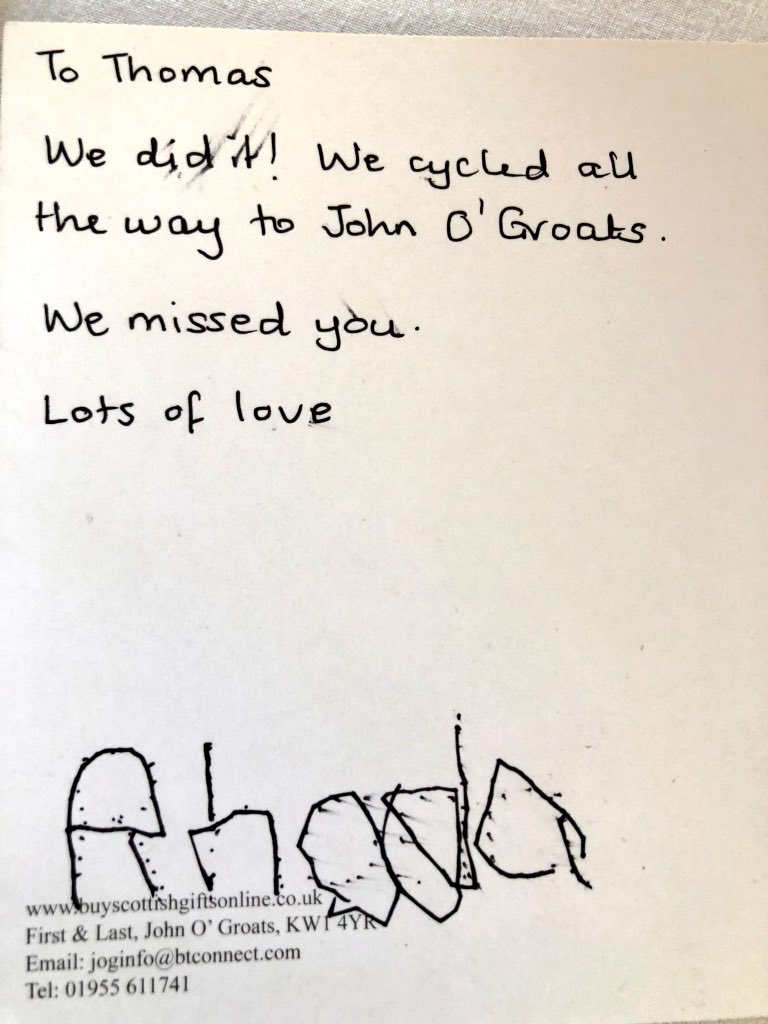 To Thomas
We did it! We cycled all
the way to John O'Groats.
We missed you.
Lots of love
Rhoda
www.buyscottishgiftsonline.co.uk
First & Last, John O' Groats, KW1 4YR
Email: joginfo@btconnect.com
Tel: 01955 611741